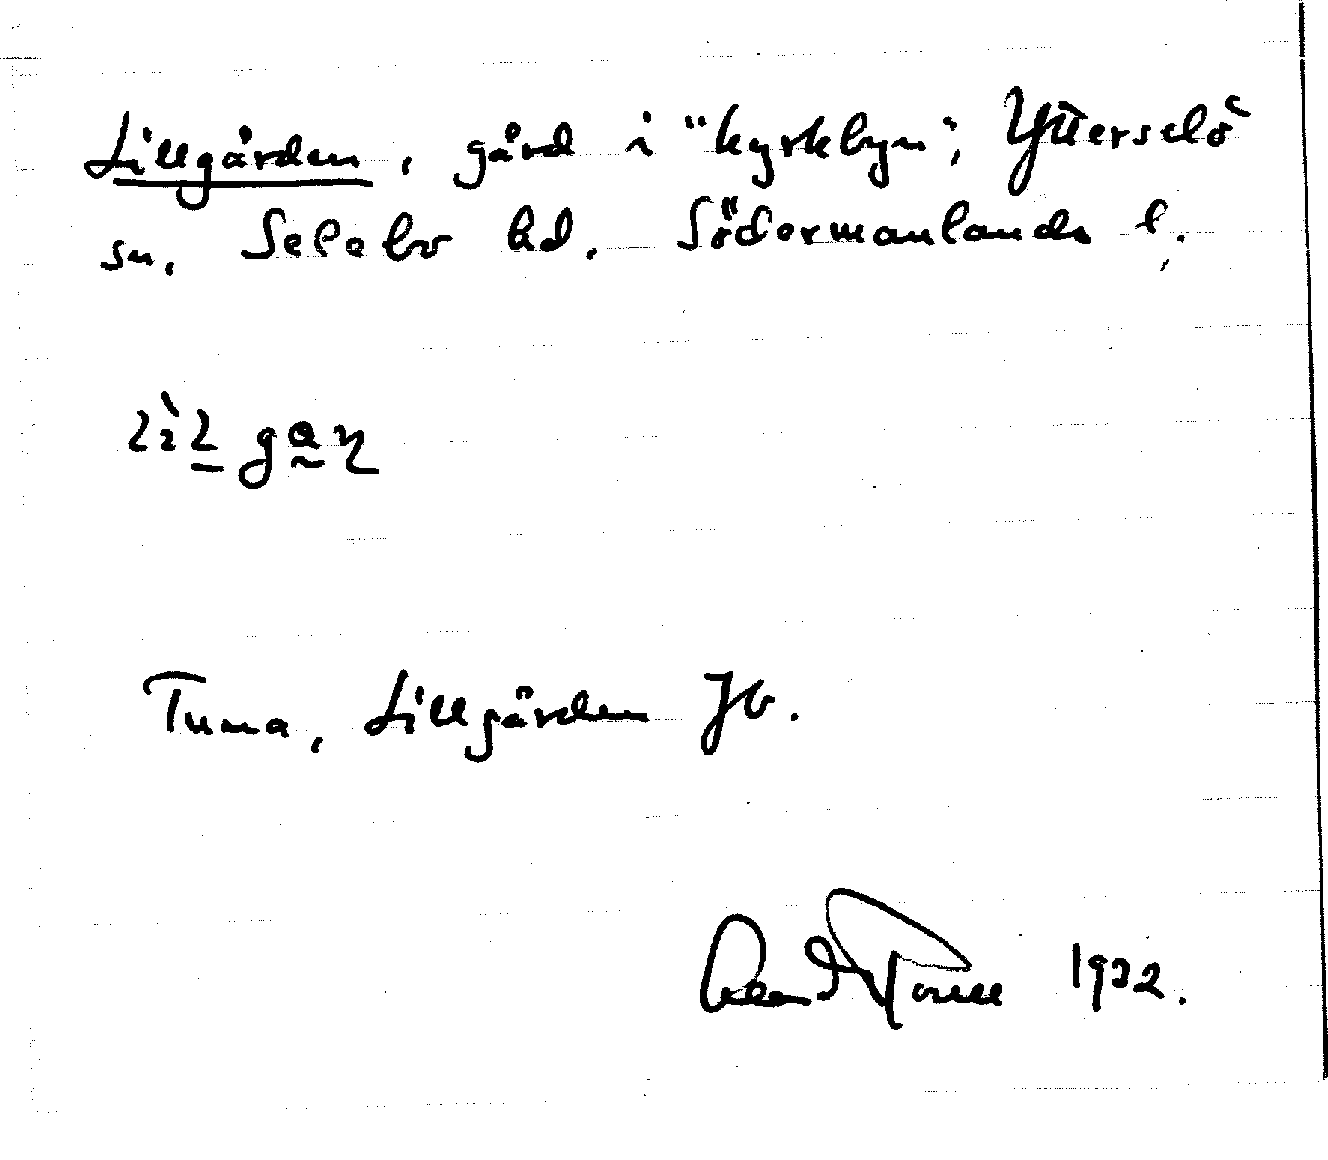 Lillgården, gård i "kyrkbyn", Ytterselö
sn. Selebo hd. Södermanlands l.
Tuna, Lillgården Jb.
1932.